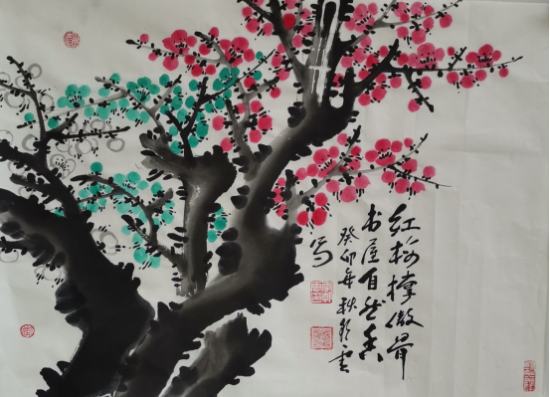 红梅撑傲骨
书屋自然香
癸卯年秋
写